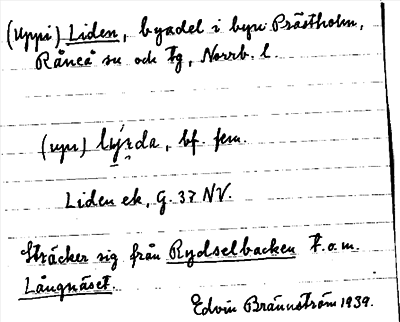 (Uppi) Liden, byadel i byn Prästholm,
Råneå sn och tg, Norrb. l.
(upi) , bf. fem.
Liden ek, G. 37 NV.
Sträcker sig från Rydselbacken t.o.m.
Långnäset.
Edvin Brännström 1939.